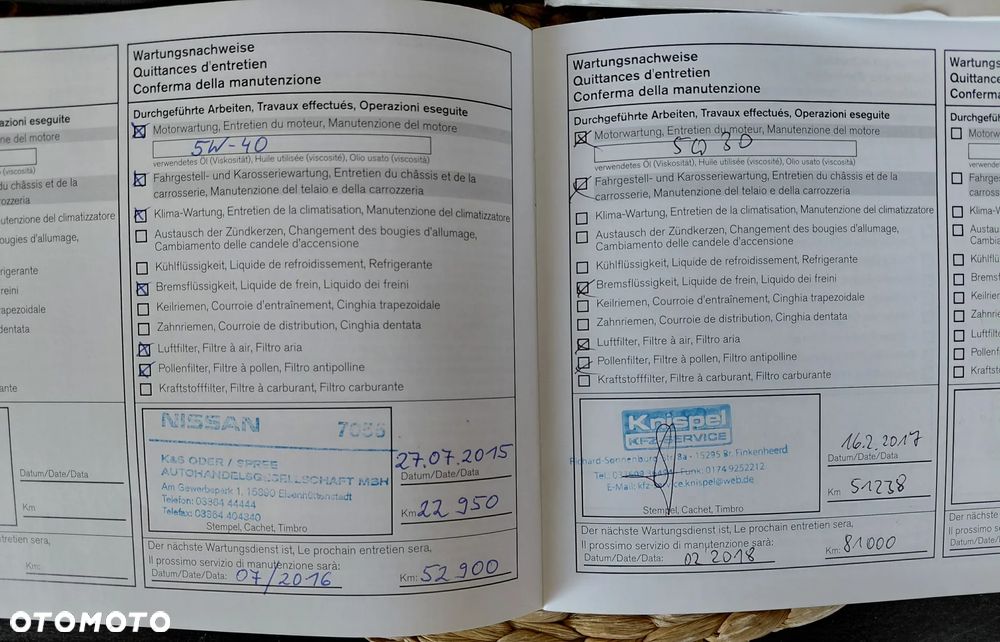 azioni eseguite
ne del motore
(viscosità)
du châssis et de la
rozzeria
utenzione del climatizzatore
bougies d'allumage,
rigerante
freini
pezoidale
dentata
ante
Datum/Date/Data
Km
tretien sera,
Km:
Wartungsnachweise
Quittances d'entretien
Conferma della manutenzione
Durchgeführte Arbeiten, Travaux effectués, Operazioni eseguite
Motorwartung, Entretien du moteur, Manutenzione del motore
5W-40
verwendetes Öl (Viskosität), Huile utilisée (viscosité), Olio usato (viscosità)
Fahrgestell- und Karosseriewartung, Entretien du châssis et de la
carrosserie, Manutenzione del telaio e della carrozzeria
Klima-Wartung, Entretien de la climatisation, Manutenzione del climatizzatore
Austausch der Zündkerzen, Changement des bougies d'allumage,
Cambiamento delle candele d'accensione
Kühlflüssigkeit, Liquide de refroidissement, Refrigerante
Bremsflüssigkeit, Liquide de frein, Liquido dei freini
Keilriemen, Courroie d'entraînement, Cinghia trapezoidale
Zahnriemen, Courroie de distribution, Cinghia dentata
Luftfilter, Filtre à air, Filtro aria
Pollenfilter, Filtre à pollen, Filtro antipolline
Kraftstofffilter, Filtre à carburant, Filtro carburante
NISSAN 7055
K&S ODER / SPREE
AUTOHANDELSGESELLSCHAFT MBH
Am Gewerbepark 1, 15890 Eisenhüttenstadt
Telefon: 03364 44444
Telefax: 03364 404340
Stempel, Cachet, Timbro
27.07.2015
Datum/Date/Data
Km 22 950
Der nächste Wartungsdienst ist, Le prochain entretien sera,
Il prossimo servizio di manutenzione sarà:
Datum/Date/Data: 07/2016 Km: 52 900
Wartungsnachweise
Quittances d'entretien
Conferma della manutenzione
Durchgeführte Arbeiten, Travaux effectués, Operazioni eseguite
Motorwartung, Entretien du moteur, Manutenzione del motore
5W 30
verwendetes Öl (Viskosität), Huile utilisée (viscosité), Olio usato (viscosità)
Fahrgestell- und Karosseriewartung, Entretien du châssis et de la
carrosserie, Manutenzione del telaio e della carrozzeria
Klima-Wartung, Entretien de la climatisation, Manutenzione del climatizzatore
Austausch der Zündkerzen, Changement des bougies d'allumage,
Cambiamento delle candele d'accensione
Kühlflüssigkeit, Liquide de refroidissement, Refrigerante
Bremsflüssigkeit, Liquide de frein, Liquido dei freini
Keilriemen, Courroie d'entraînement, Cinghia trapezoidale
Zahnriemen, Courroie de distribution, Cinghia dentata
Luftfilter, Filtre à air, Filtro aria
Pollenfilter, Filtre à pollen, Filtro antipolline
Kraftstofffilter, Filtre à carburant, Filtro carburante
Knispel
KFZ-SERVICE
Richard-Sonnenburg-Str. 8a - 15295 Br. Finkenheerd
Funk: 0174 9252212
E-Mail: kfz-service.knispel@web.de
Stempel, Cachet, Timbro
16.2.2017
Datum/Date/Data
Km 51238
Der nächste Wartungsdienst ist, Le prochain entretien sera,
Il prossimo servizio di manutenzione sarà:
Datum/Date/Data: 02 2018 Km: 81000
Wartungs
Quittanc
Conferma
Durchgefüh
Motorwa
verwendete
Fahrgest
carrosse
Klima-W
Austaus
Cambia
Kühlflü
Bremsfl
Keilriem
Zahnrie
Luftfilte
Pollenf
Kraftst
Der nächst
Il prossimo
Datum/Date
OTOMOTO